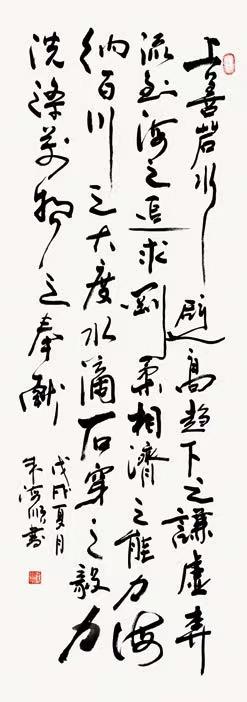 上善若水避高趋下之謙虚奔
流到海之追求剛柔相濟之能力海
纳百川之大度水滴石穿之毅力
洗滌萬物之奉献
戊戌夏月